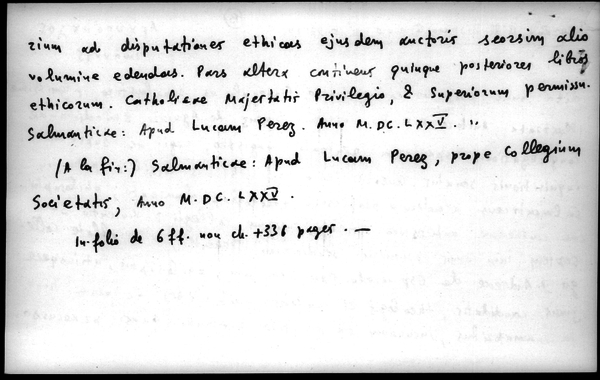 rium ad disputationes ethicas ejusdem auctoris seorsim alio
volumine edendas. Pars altera continens quinque posteriores libros
ethicorum. Catholicae Majestatis Privilegio, & Superiorum permissu.
Salmanticae: Apud Lucam Perez. Anno M.DC.LXXV. "
(A la fin:) Salmanticae: Apud Lucam Perez, prope Collegium
Societatis, Anno M.DC.LXXV.
In-folio de 6 ff. non ch. + 336 pages. —